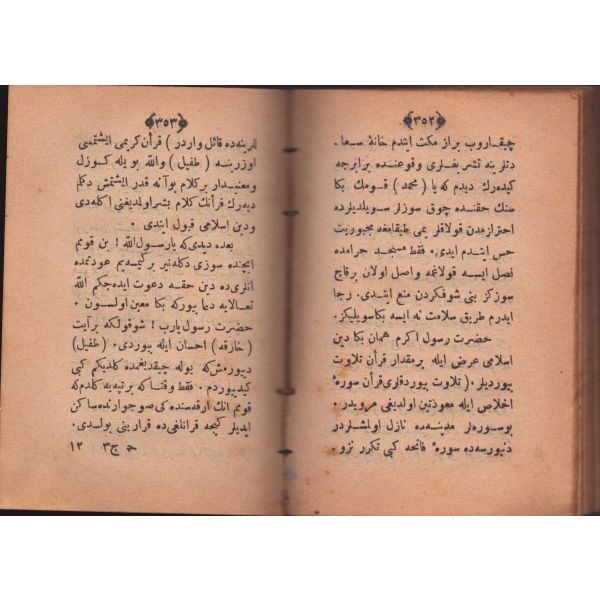 ﴿٣٥٢﴾
چیقاروب براز مكث ایتدم خانهٔ سعا .
دتلرینه تشریفلری وقوعنده برابرجه
كیده‌رك دیدم كه یا ( محمد ) قومك بكا
سنك حقنده چوق سوزلر سویلدیلرده
احترازمدن قولاقلریمی طیقامغه مجبوریت
حس ایتدم ایدی . فقط مسجد حرامده
فصل ایسه قولاغمه واصل اولان برقاچ
سوزكز بنی شوفكردن منع ایتدی . رجا
ایدرم طریق سلامت نه ایسه بكاسویلیكز.
حضرت رسول اكرم همان بكا دین
اسلامی عرض ایله برمقدار قرآن تلاوت
بیوردیلر.( تلاوت بیوردقلری قرآن سورهٔ
اخلاص ایله معوذتین اولدیغی مرویدر .
بوسوره‌لر مدینه‌ده نازل اولمشلردر
دنیورسه‌ده سورهٔ فاتحه كبی تكرر نزو .
﴿٣٥٣﴾
للرینه‌ده قائل واردر ) قرآن كریمی ایشتمسی
اوزرینه ( طفیل ) والله بویله كوزل
ومعنیدار بركلام بوآنه قدر ایشتمش دكلم
دیه‌رك قرآنك كلام بشر اولمدیغنی اكلادی
ودین اسلامی قبول ایتدی .
بعده دیدی‌كه یارسول‌الله ! بن قومم
ایچنده سوزی دكلنیر بركیمسه‌یم عودتمده
انلری‌ده دین حقه دعوت ایده‌جكم الله
تعالایه دعا بیورکه بكا معین اولسون .
حضرت رسول یارب ! شوقولكه برآیت
( خارقه ) احسان ایله بیوردی . ( طفیل )
دیورمش‌كه یوله چیقدیغمده كلدیكم كبی
كیدییوردم . فقط وقتاكه برتپه‌یه كلدم‌كه
قومم انك ارقه‌سنده كی صو جوارنده ساكن
ایدیلر كیجه قرانلغی‌ده قرارینی بولدی.
ج ٣ ١٢